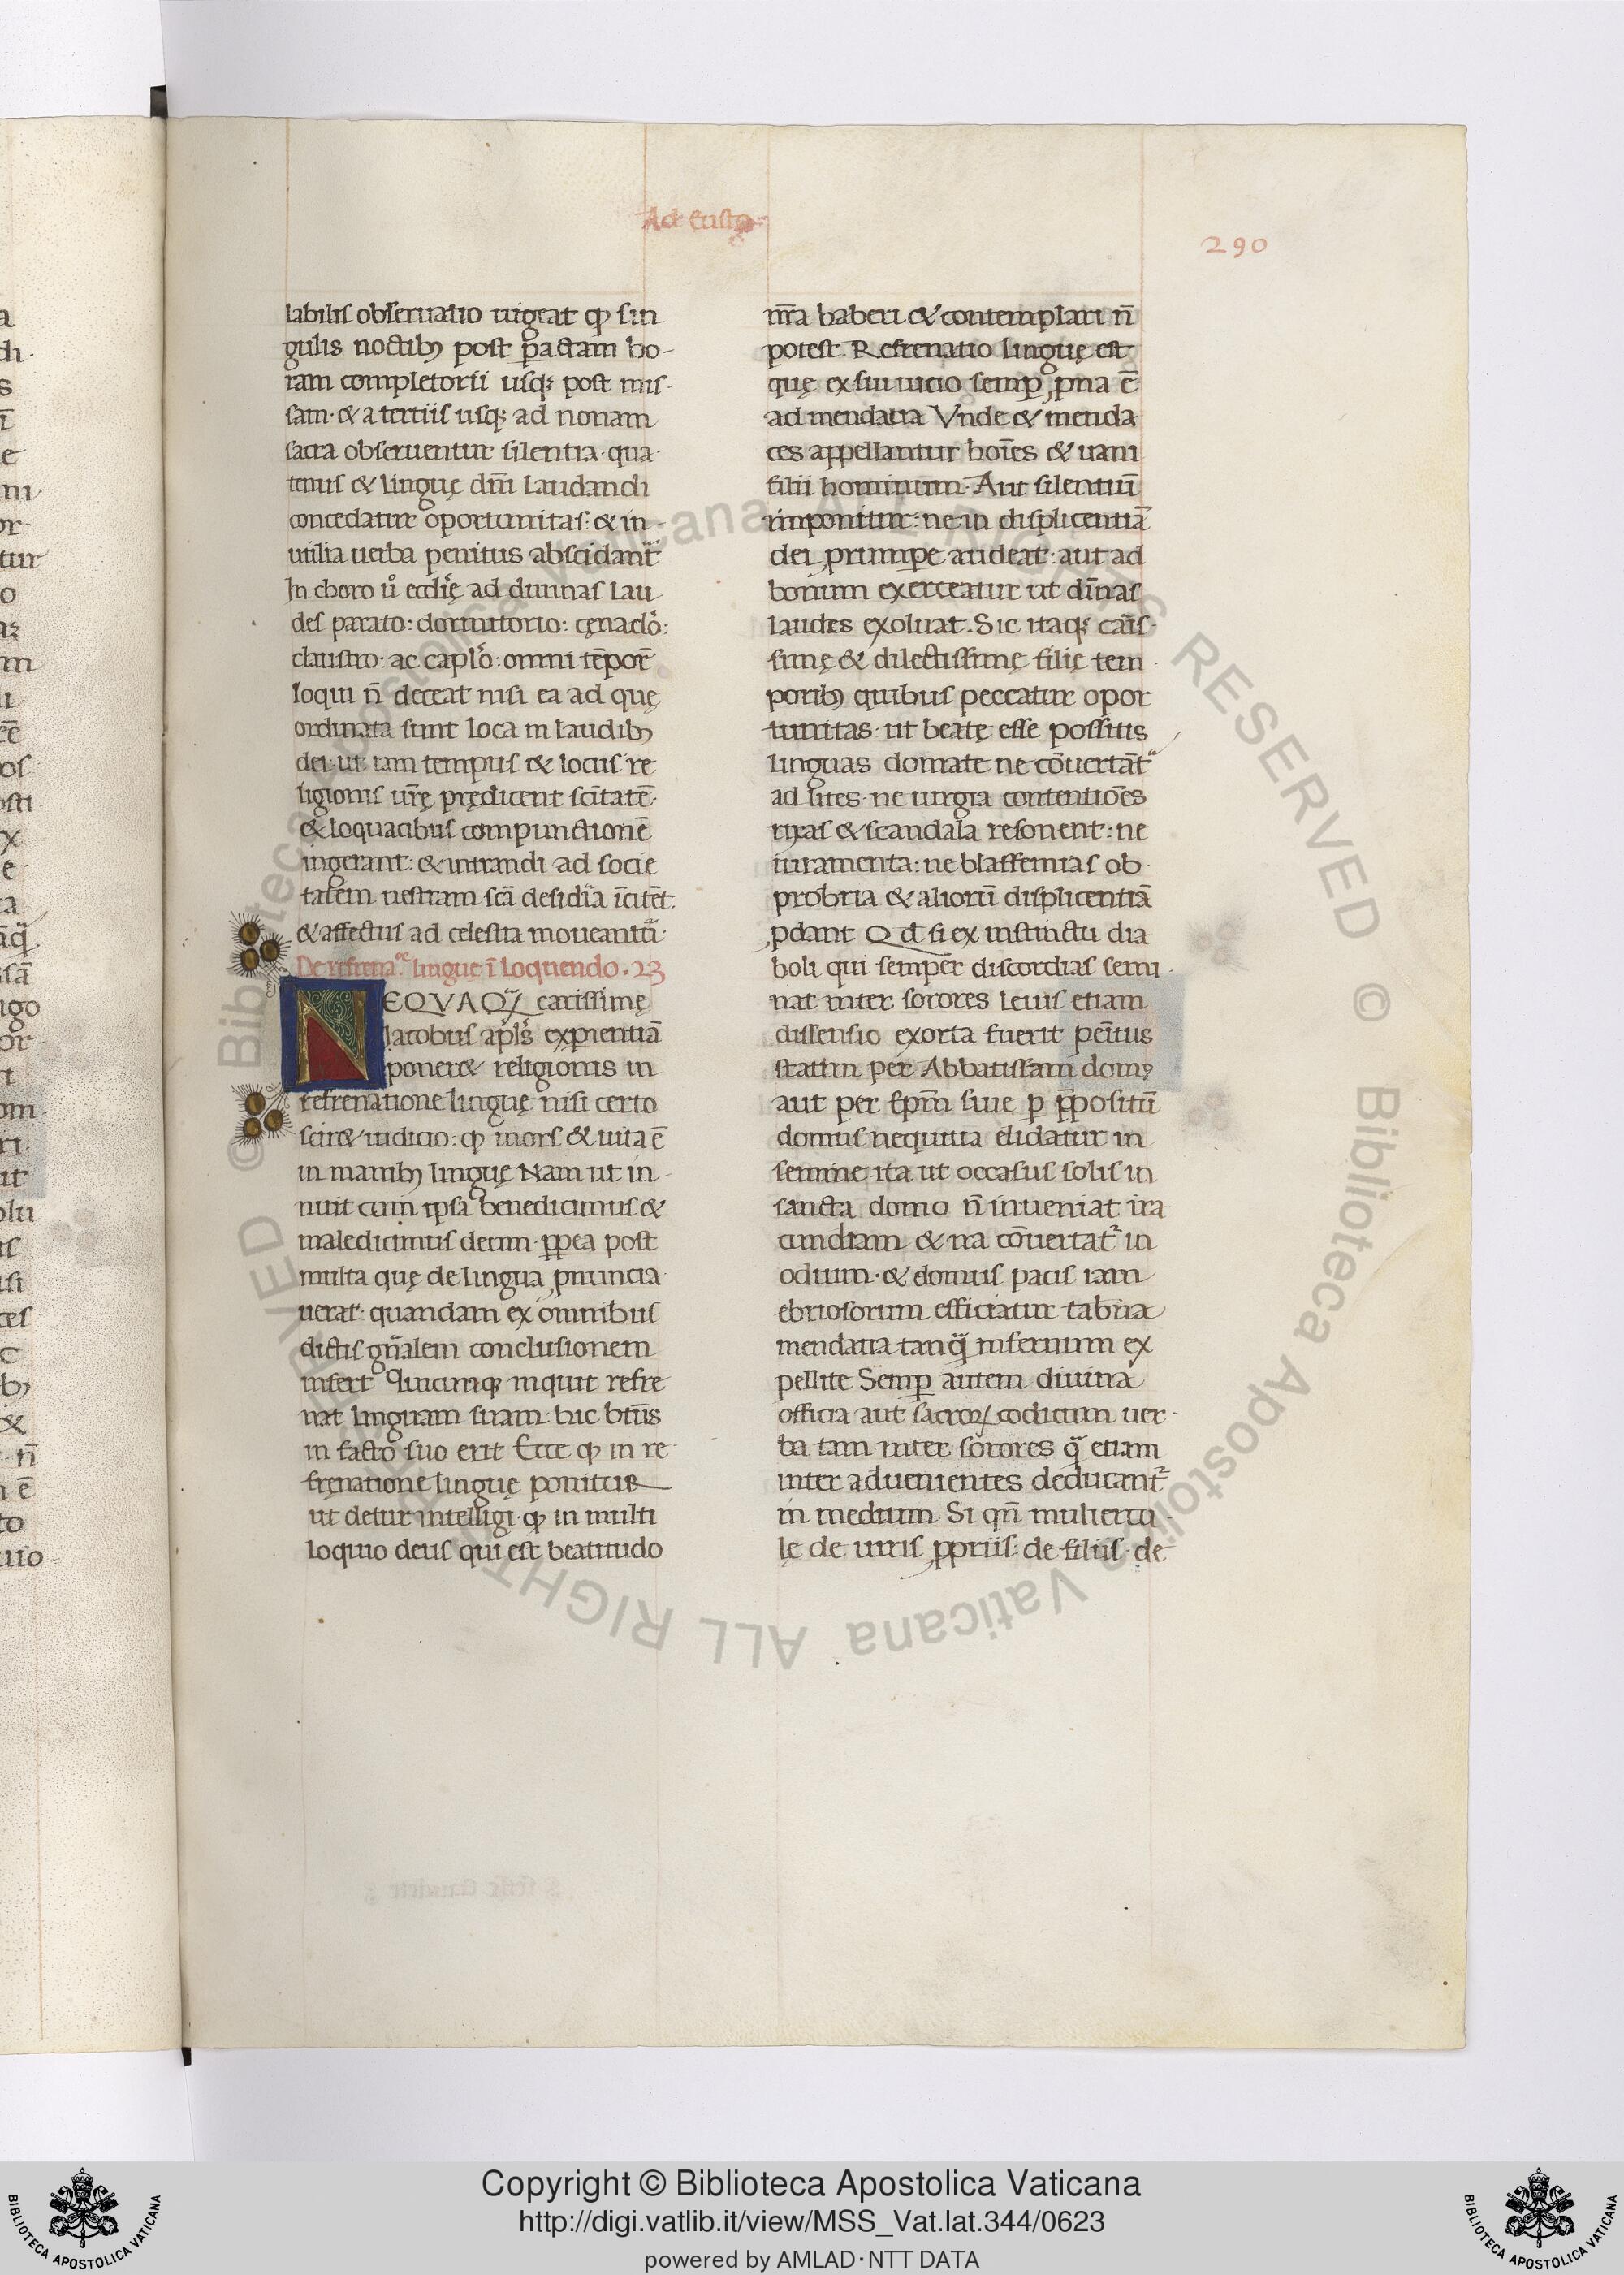 Ad Eusto
290
labilis obseruatio uigeat ꝙ sin
gulis noctibꝫ post ꝑactam ho-
ram completorii usqꝫ post mis-
sam· & a tertiis usqꝫ ad nonam
sacra obseruentur silentia· qua-
tenus & linguę dn̄i laudandi
concedatur oportunitas: & in-
utilia uerba penitus abscidant᷑
In choro u̇̊ eccl̄ię ad diuinas lau
des parato: dormitorio: cęnacl̊o:
claustro: ac capl̊o: omni tēpor̄
loqui n̄ deceat nisi ea ad quę
ordinata sunt loca in laudibꝫ
dei· ut tam tempus & locus re
ligionis ur̄ę prędicent sc̄itatē·
& loquacibus compunctionē
ingerant: & intrandi ad socie
tatem uestram sc̄a desidīa īcitēt.
& affectus ad celestia moueant᷑·
De refrenaᵒᵉ linguę ī loquendo. 23
NEQVAQꝫ carissimę
Iacobus ap̄ls exꝑientiā
poneret religionis in
refrenatione linguę nisi certo
sciret iudicio: ꝙ mors & uita ē
in manibꝫ linguę Nam ut in-
nuit cum ipsa benedicimus &
maledicimus deum· ꝓpea post
multa quę de lingua ꝓnuncia
uerat: quandam ex omnibus
dictis gn̄alem conclusionem
infert Quicunqꝫ inquit refre
nat linguam suam: hic bt̄us
in facto suo erit Ecce ꝙ in re-
fręnatione linguę ponitur
ut detur intelligi· ꝙ in multi
loquio deus qui est beatitudo
nr̄a haberi & contemplari n̄
potest. Refrenatio linguę est
quę ex sui uicio semꝑ ꝓna ē
ad mendatia Vnde & menda
ces appellantur hoīes & uani
filii hominum· Aut silentiū
imponitur: ne in displicentiā
dei ꝓrumpe audeat: aut ad
bonum exerceatur ut diīnas
laudes exoluat. Sic itaqꝫ cār̄is-
simę & dilectissimę filię tem
poribꝫ quibus peccatur opor
tunitas· ut beatę esse possitis
linguas domate ne cōuertāt᷑
ad lites· ne iurgia contentiōes
rixas & scandala resonent: ne
iuramenta: ne blasfemias ob-
probria & aliorū displicentiā
ꝓdant Qd si ex instinctu dia
boli qui semper discordias semi-
nat inter sorores leuis etiam
dissensio exorta fuerit pēitus
statim per Abbatissam domꝰ
aut per Ep̄m siue ꝑ p̄positū
domus nequitia elidatur in
semine· ita ut occasus solis in
sancta domo n̄ inueniat ira
cundiam & ira cōuertat᷑ in
odium· & domus pacis iam
ebriosorum efficiatur tab̄na
mendatia tanqͣ infernum ex
pellite Semꝑ autem diuina
officia aut sacroꝝ codicum uer-
ba tam inter sorores qͣ etiam
inter aduenientes deducant᷑
in medium Si qn̄ muliercu-
lę de uiris ꝓpriis· de filiis· de
Copyright © Biblioteca Apostolica Vaticana
http://digi.vatlib.it/view/MSS_Vat.lat.344/0623
powered by AMLAD·NTT DATA
BIBLIOTECA APOSTOLICA VATICANA
BIBLIOTECA APOSTOLICA VATICANA
© Biblioteca Apostolica Vaticana ALL RIGHTS RESERVED © Biblioteca Apostolica Vaticana ALL RIGHTS RESERVED